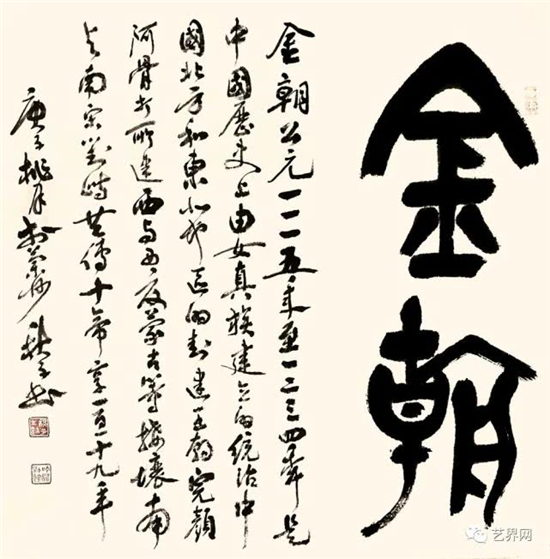 金朝
金朝公元一一一五年至一二三四年是
中國歷史上由女真族建立的統治中
國北方和東北地區的封建王朝完顏
阿骨打所建西與西夏蒙古等接壤南
與南宋對峙共傳十帝享一百一十九年
庚子桃月於
艺界网